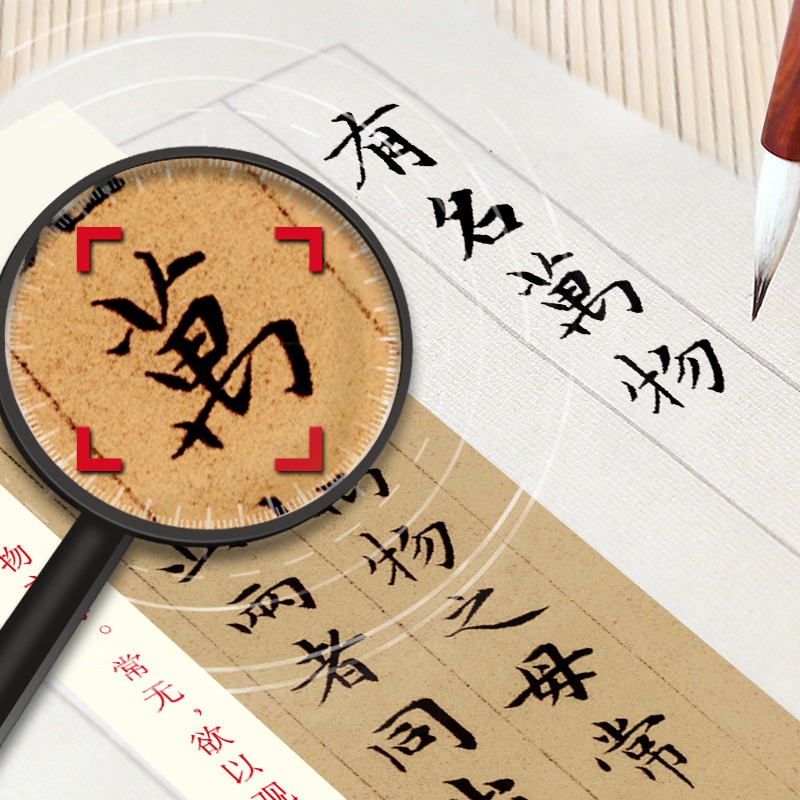 有名萬物
之母常
物
此兩者同
萬
物
。常无，欲以观